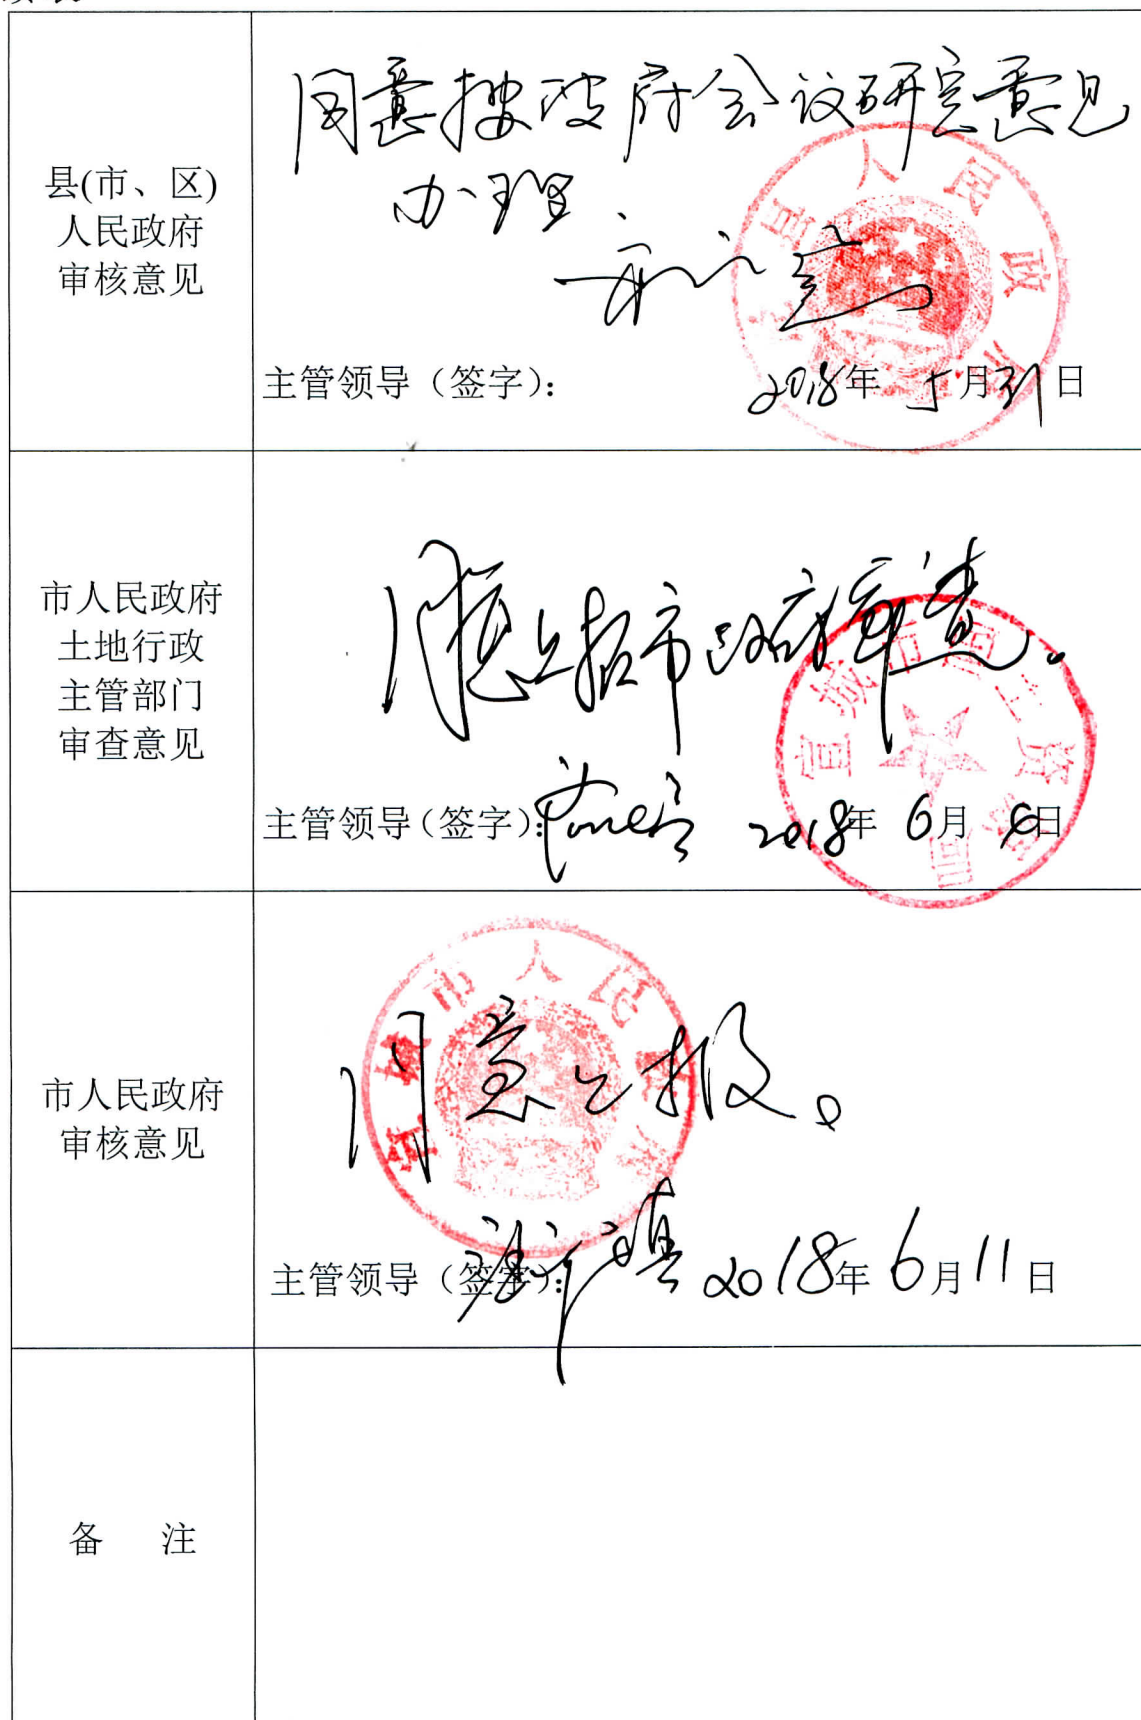 县(市、区)
人民政府
审核意见
同意按政府会议研究意见
办理.
县人民政府
主管领导（签字）：
2018年 5月31日
市人民政府
土地行政
主管部门
审查意见
同意上报市政府审查。
宣城市国土资源局
主管领导（签字）：
2018年 6月 6日
市人民政府
审核意见
宣城市人民政府
同意上报。
主管领导（签字）：
2018年 6月11日
备 注